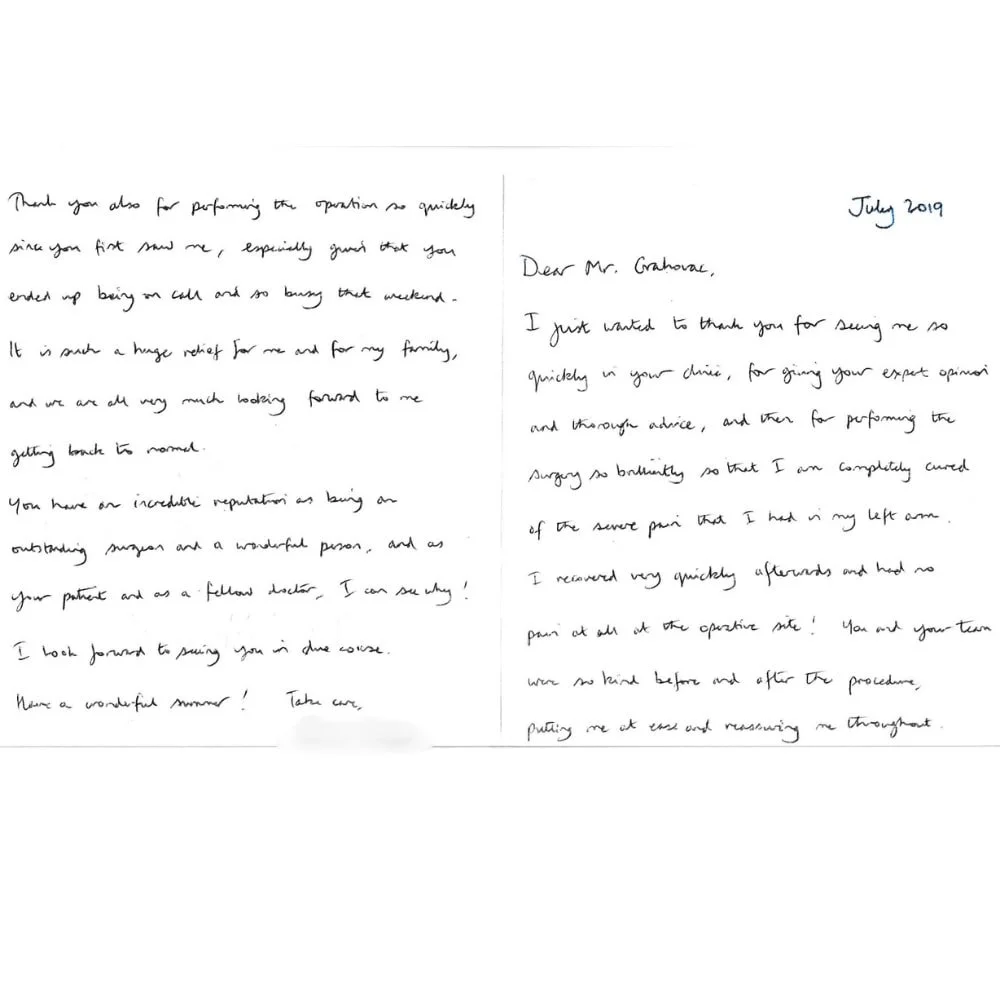 July 2019
Dear Mr. Grahovac,
I just wanted to thank you for seeing me so
quickly in your clinic, for giving your expert opinion
and thorough advice, and then for performing the
surgery so brilliantly so that I am completely cured
of the severe pain that I had in my left arm.
I recovered very quickly afterwards and had no
pain at all at the operative site! You and your team
were so kind before and after the procedure,
putting me at ease and reassuring me throughout.
Thank you also for performing the operation so quickly
since you first saw me, especially given that you
ended up being on call and so busy that weekend.
It is such a huge relief for me and for my family,
and we are all very much looking forward to me
getting back to normal.
You have an incredible reputation as being an
outstanding surgeon and a wonderful person, and as
your patient and as a fellow doctor, I can see why!
I look forward to seeing you in due course.
Have a wonderful summer! Take care,